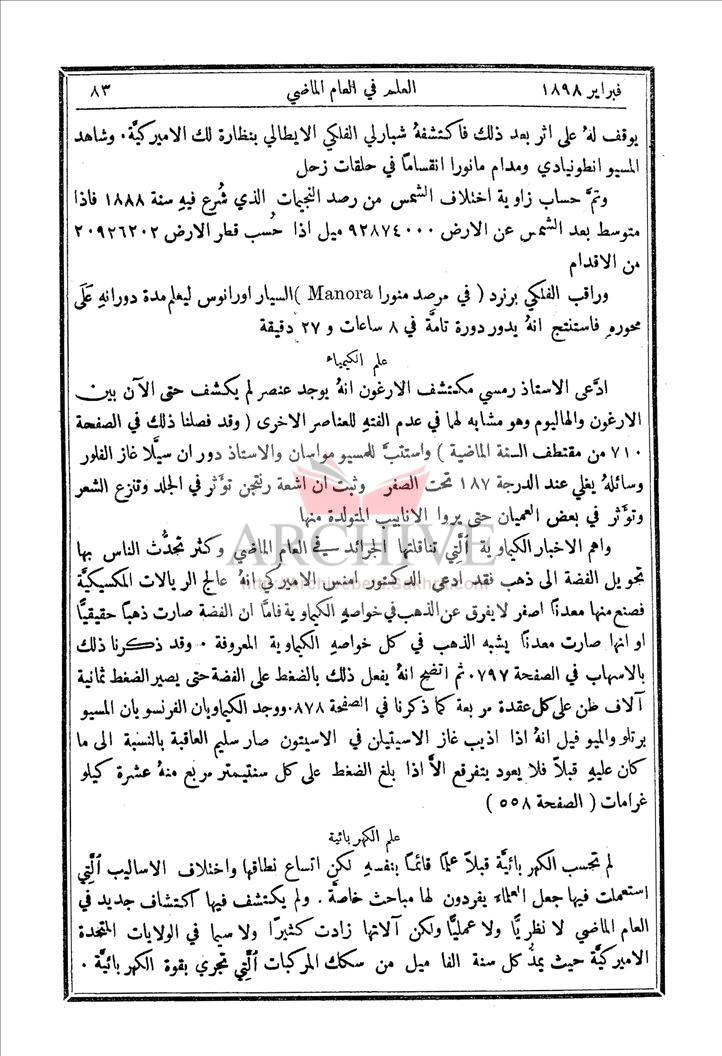 فبراير ١٨٩٨
العلم في العام الماضي
٨٣
يوقف لهُ على اثر بعد ذلك فاكتشفهُ شبارلي الفلكي الايطالي بنظارة لك الاميركيَّة. وشاهد
المسيو انطونيادي ومدام مانورا انقساماً في حلقات زحل
وتمَّ حساب زاوية اختلاف الشمس من رصد النجيمات الذي شُرع فيهِ سنة ١٨٨٨ فاذا
متوسط بعد الشمس عن الارض ٩٢٨٧٤٠٠٠ ميل اذا حُسب قطر الارض ٢٠٩٢٦٢٠٢
من الاقدام
وراقب الفلكي برنرد ( في مرصد منورا Manora )السيار اورانوس ليعلم مدة دورانهِ عَلَى
محورهِ فاستنتج انهُ يدور دورة تامَّة في ٨ ساعات و ٢٧ دقيقة
علم الكيمياء
ادَّعى الاستاذ رمسي مكتشف الارغون انهُ يوجد عنصر لم يكشف حتى الآن بين
الارغون والهاليوم وهو مشابه لها في عدم الفته للعناصر الاخرى ( وقد فصلنا ذلك في الصفحة
٧١٠ من مقتطف السنة الماضية ) واستتبَّ للمسيو مواسان والاستاذ دور ان سيَّلا غاز الفلور
وسائلهُ يغلي عند الدرجة ١٨٧ تحت الصفر وثبت ان اشعة رنتجن تؤثر في الجلد وتنزع الشعر
وتؤثر في بعض العميان حتى يروا الانابيب المتولدة منها
واهم الاخبار الكيماوية الَّتي تناقلتها الجرائد في العام الماضي وكثر تحدُّث الناس بها
تحويل الفضة الى ذهب فقد ادعى الدكتور امنس الاميركي انهُ عالج الريالات المكسيكيَّة
فصنع منها معدناً اصفر لا يفرق عن الذهب في خواصهِ الكيماوية فامَّا ان الفضة صارت ذهباً حقيقيًّا
او انها صارت معدناً يشبه الذهب في كل خواصهِ الكيماوية المعروفة . وقد ذكرنا ذلك
بالاسهاب في الصفحة ٧٩٧. ثم اتضح انهُ يفعل ذلك بالضغط على الفضة حتى يصير الضغط ثمانية
آلاف طن على كل عقدة مربعة كما ذكرنا في الصفحة ٨٧٨. ووجد الكيماويان الفرنسويان المسيو
برتلو والميو فيل انهُ اذا اذيب غاز الاسيتيلن في الاسيتون صار سليم العاقبة بالنسبة الى ما
كان عليهِ قبلاً فلا يعود يتفرقع الاَّ اذا بلغ الضغط على كل سنتيمتر مربع منهُ عشرة كيلو
غرامات ( الصفحة ٥٥٨ )
علم الكهربائية
لم تحسب الكهربائيَّة قبلاً علماً قائماً بنفسهِ لكن اتساع نطاقها واختلاف الاساليب الَّتي
استعملت فيها جعل العلماء يفردون لها مباحث خاصَّة . ولم يكتشف فيها اكتشاف جديد في
العام الماضي لا نظريًّا ولا عمليًّا ولكن آلاتها زادت كثيرًا ولا سيما في الولايات المتحدة
الاميركيَّة حيث يمدُّ كل سنة الفا ميل من سكك المركبات الَّتي تجري بقوة الكهربائيَّة .
ARCHIVE